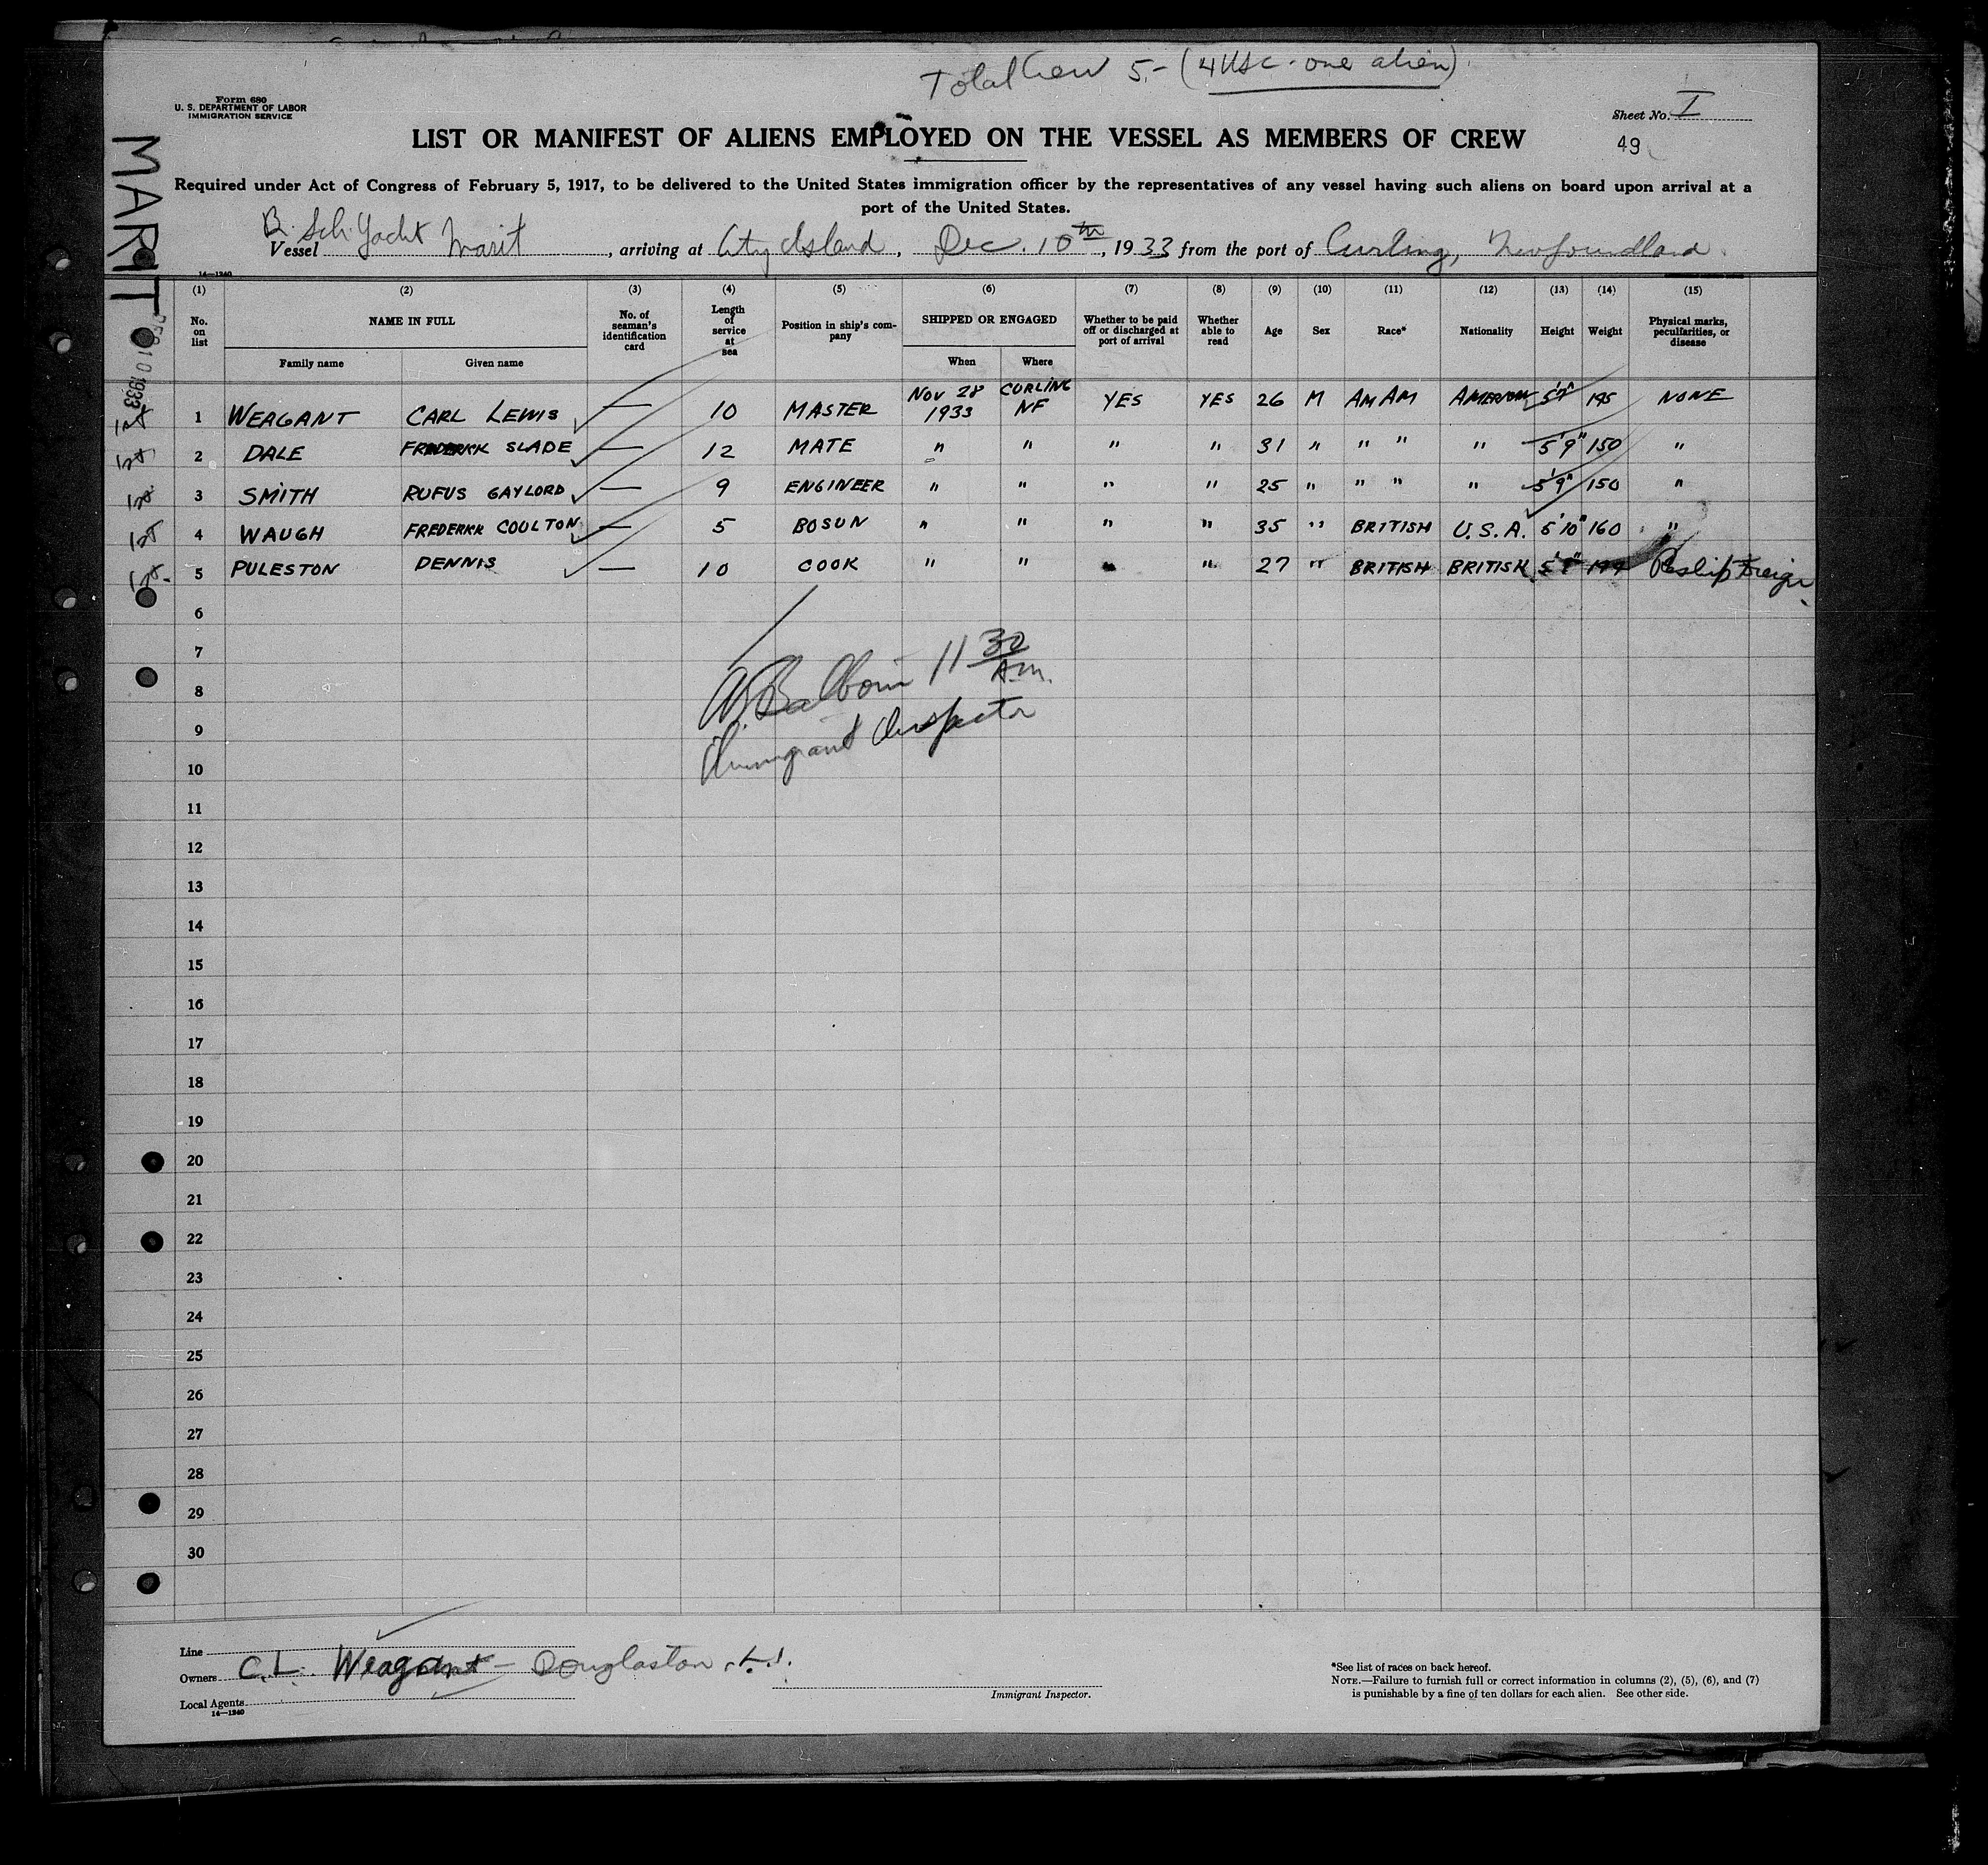 Total Crew 5.- (4 USC - one alien)
Form 680
U. S. DEPARTMENT OF LABOR
IMMIGRATION SERVICE
Sheet No. I
LIST OR MANIFEST OF ALIENS EMPLOYED ON THE VESSEL AS MEMBERS OF CREW
49
Required under Act of Congress of February 5, 1917, to be delivered to the United States immigration officer by the representatives of any vessel having such aliens on board upon arrival at a
port of the United States.
Vessel B. Sch. Yacht Marit, arriving at City Island, Dec. 10th, 1933 from the port of Curling, Newfoundland.
14—1240
MARIT
DEC 10 1933
(1) (2) (3) (4) (5) (6) (7) (8) (9) (10) (11) (12) (13) (14) (15)
No. on list
NAME IN FULL
Family name
Given name
No. of seaman's identification card
Length of service at sea
Position in ship's company
SHIPPED OR ENGAGED
When
Where
Whether to be paid off or discharged at port of arrival
Whether able to read
Age
Sex
Race*
Nationality
Height
Weight
Physical marks, peculiarities, or disease
1st 1 WEAGANT CARL LEWIS — 10 MASTER Nov 28 1933 CURLING NF YES YES 26 M AM AM AMERICAN NONE
1st 2 DALE FREDERICK SLADE — 12 MATE " " " " 31 " " " " 5'9" 150 "
1st 3 SMITH RUFUS GAYLORD — 9 ENGINEER " " " " 25 " " " " 5'9" 150 "
1st 4 WAUGH FREDERICK COULTON — 5 BOSUN " " " " 35 " BRITISH U.S.A. 5'10" 160 "
1st. 5 PULESTON DENNIS — 10 COOK " " " " 27 " BRITISH BRITISH Reship Foreign
6
7
8
9
10
11
12
13
14
15
16
17
18
19
20
21
22
23
24
25
26
27
28
29
30
11 30 A.M.
Immigrant Inspector
Line
Owners C. L. Weagant - Douglaston, L.I.
Local Agents
14—1240
Immigrant Inspector.
*See list of races on back hereof.
NOTE.—Failure to furnish full or correct information in columns (2), (5), (6), and (7)
is punishable by a fine of ten dollars for each alien. See other side.